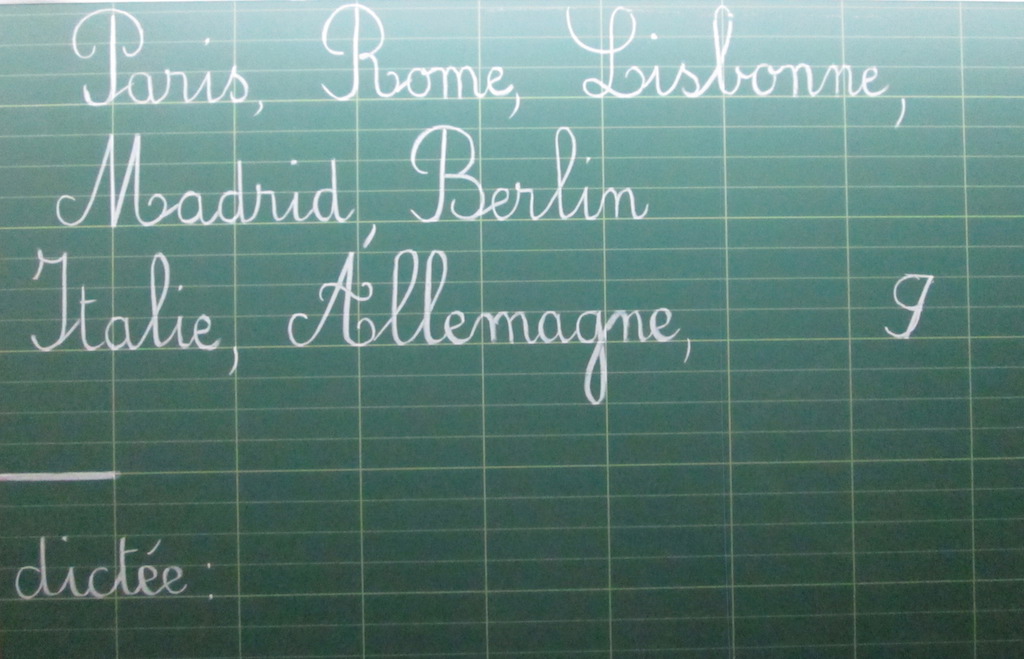 Paris, Rome, Lisbonne,
Madrid, Berlin
Italie, Allemagne,
dictée :